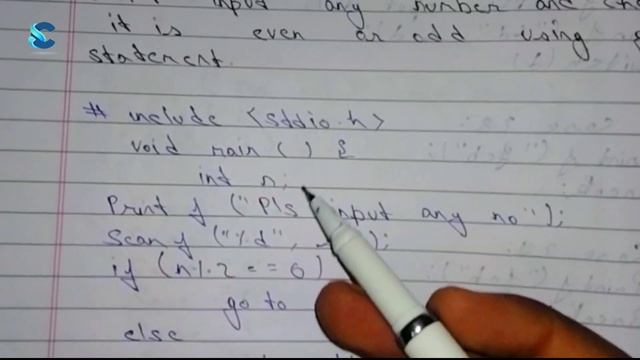 input any number and
it is even or odd using
statement.
# include <stdio.h>
void main () {
int n;
Printf ("Pls input any no");
Scanf ("%d", );
if (n%2 == 0)
go to
else